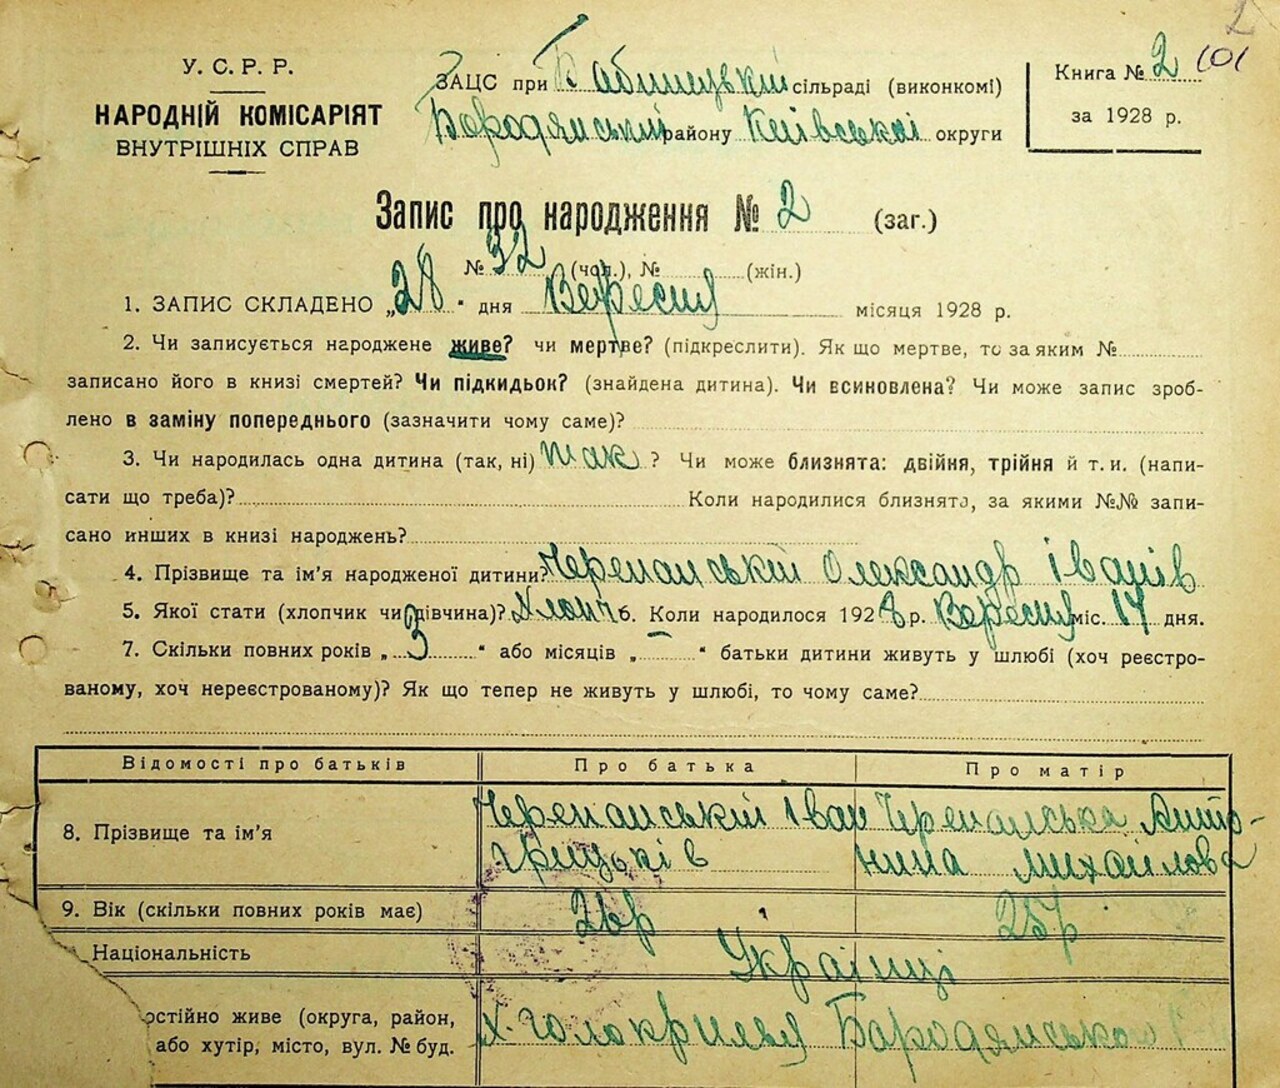 2
101
У. С. Р. Р.
НАРОДНІЙ КОМІСАРІЯТ
ВНУТРІШНІХ СПРАВ
ЗАЦС при Бабинецькій сільраді (виконкомі)
Бородянський району Київської округи
Книга № 2
за 1928 р.
Запис про народження № 2 (заг.)
№ 32 (чол.), № (жін.)
1. ЗАПИС СКЛАДЕНО „28" дня Вересня місяця 1928 р.
2. Чи записується народжене живе? чи мертве? (підкреслити). Як що мертве, то за яким №
записано його в книзі смертей? Чи підкидьок? (знайдена дитина). Чи всиновлена? Чи може запис зроб-
лено в заміну попереднього (зазначити чому саме)?
3. Чи народилась одна дитина (так, ні) так ? Чи може близнята: двійня, трійня й т. и. (напи-
сати що треба)? Коли народилися близнята, за якими №№ запи-
сано инших в книзі народжень?
4. Прізвище та ім'я народженої дитини? Черепанський Олександр Іванів
5. Якої стати (хлопчик чи дівчина)? Хлопч 6. Коли народилося 1928 р. Вересня міс. 17 дня.
7. Скільки повних років „ 3 " або місяців „ – " батьки дитини живуть у шлюбі (хоч реєстро-
ваному, хоч нереєстрованому)? Як що тепер не живуть у шлюбі, то чому саме?
Відомості про батьків Про батька Про матір
8. Прізвище та ім'я Черепанський Іван Грицьків Черепанська Анто-
нина Михайлова
9. Вік (скільки повних років має) 26р 25р
Національність Українці
остійно живе (округа, район, х. Голакрилля Бородянсько
або хутір, місто, вул. № буд.